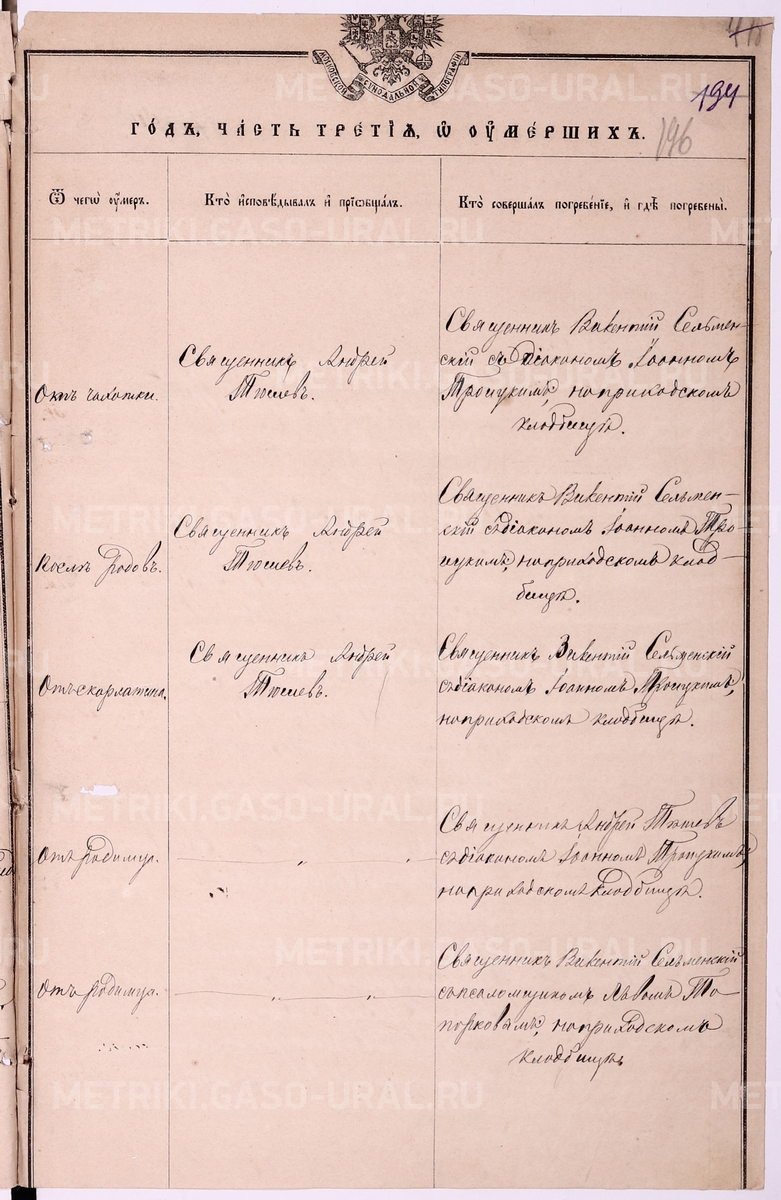 МОСКОВСКОЙ СѴНОДАЛЬНОЙ ТИПОГРАФІИ
194
196
ГО́ДЪ, ЧА́СТЬ ТРЕ́ТІѦ, Ѡ҆ ОУ҆МЕ́РШИХЪ.
Ѿ чегѡ̀ оу҆́меръ.
Кто̀ и҆сповѣ́дывалъ и҆ прїѡбща́лъ.
Кто̀ соверша́лъ погребе́нїе, и҆ гдѣ̀ погребены̀.
Отъ чахотки.
Священникъ Андрей
Тюшевъ.
Священникъ Викентій Сельмен-
скій съ діакономъ Іоанномъ
Троицкимъ, на приходскомъ
кладбищѣ.
Послѣ родовъ.
Священникъ Андрей
Тюшевъ.
Священникъ Викентій Сельмен-
скій съ діакономъ Іоанномъ Тро-
ицкимъ, на приходскомъ клад-
бищѣ.
Отъ скарлатина.
Священникъ Андрей
Тюшевъ.
Священникъ Викентій Сельменскій
съ діакономъ Іоанномъ Троицкимъ,
на приходскомъ кладбищѣ.
Отъ родимца.
Священникъ Андрей Тюшевъ
съ діакономъ Іоанномъ Троицкимъ,
на приходскомъ кладбищѣ.
Отъ родимца.
Священникъ Викентій Сельменскій
съ псаломщикомъ Львомъ То-
порковымъ, на приходскомъ
кладбищѣ.
METRIKI.GASO-URAL.RU